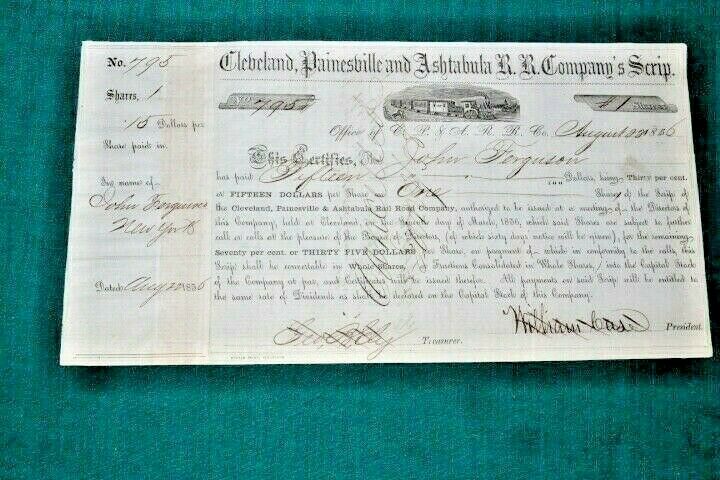 No. 795
Shares, 1
15 Dollars per
Share paid in.
In name of
John Ferguson
New York
Dated, Aug 22 1856
Cleveland, Painesville and Ashtabula R. R. Company's Scrip.
No. 795 $1 Shares
Office of C. P. & A. R. R. Co. August 22 1856
This Certifies, That John Ferguson
has paid Fifteen 100 Dollars, being Thirty per cent.
or FIFTEEN DOLLARS per Share on One Shares of the Scrip of
the Cleveland, Painesville & Ashtabula Rail Road Company, authorized to be issued at a meeting of the Directors of
this Company, held at Cleveland, on the Second day of March 1856, which said Shares are subject to further
call or calls at the pleasure of the Board of Directors, (of which sixty days notice will be given), for the remaining
Seventy per cent. or THIRTY FIVE DOLLARS per Share, on payment of which in conformity to the calls, this
Scrip shall be convertible in Whole Shares, if Fractions Consolidated in Whole Shares, into the Capital Stock
of the Company at par, and Certificates will be issued therefor. All payments on said Scrip will be entitled to
the same rate of Dividends as shall be declared on the Capital Stock of this Company.
Treasurer. William Case President.